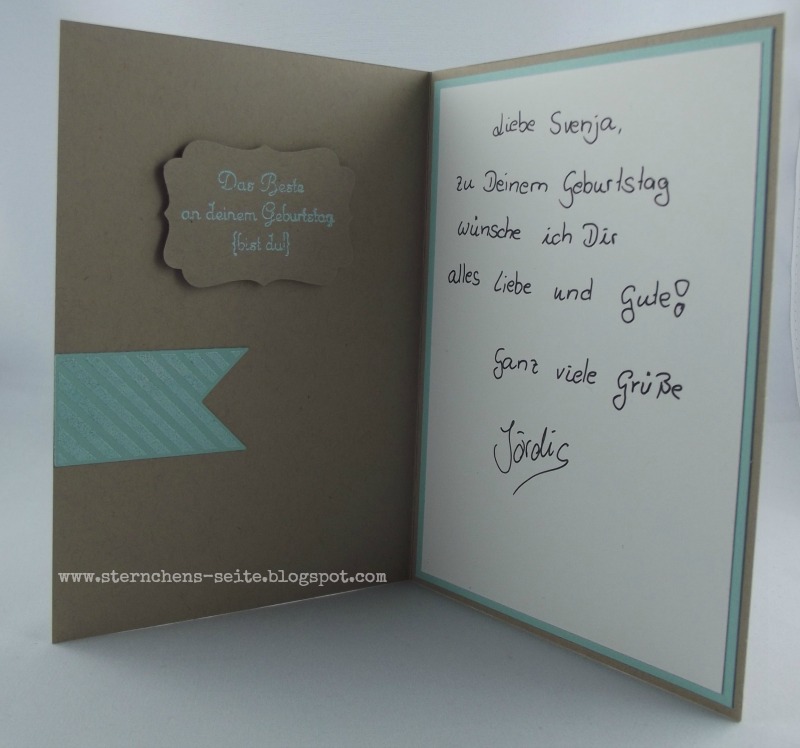 Das Beste
an deinem Geburtstag
{bist du!}
www.sternchens-seite.blogspot.com
Liebe Svenja,
zu Deinem Geburtstag
wünsche ich Dir
alles Liebe und Gute!
Ganz viele Grüße
Jördis